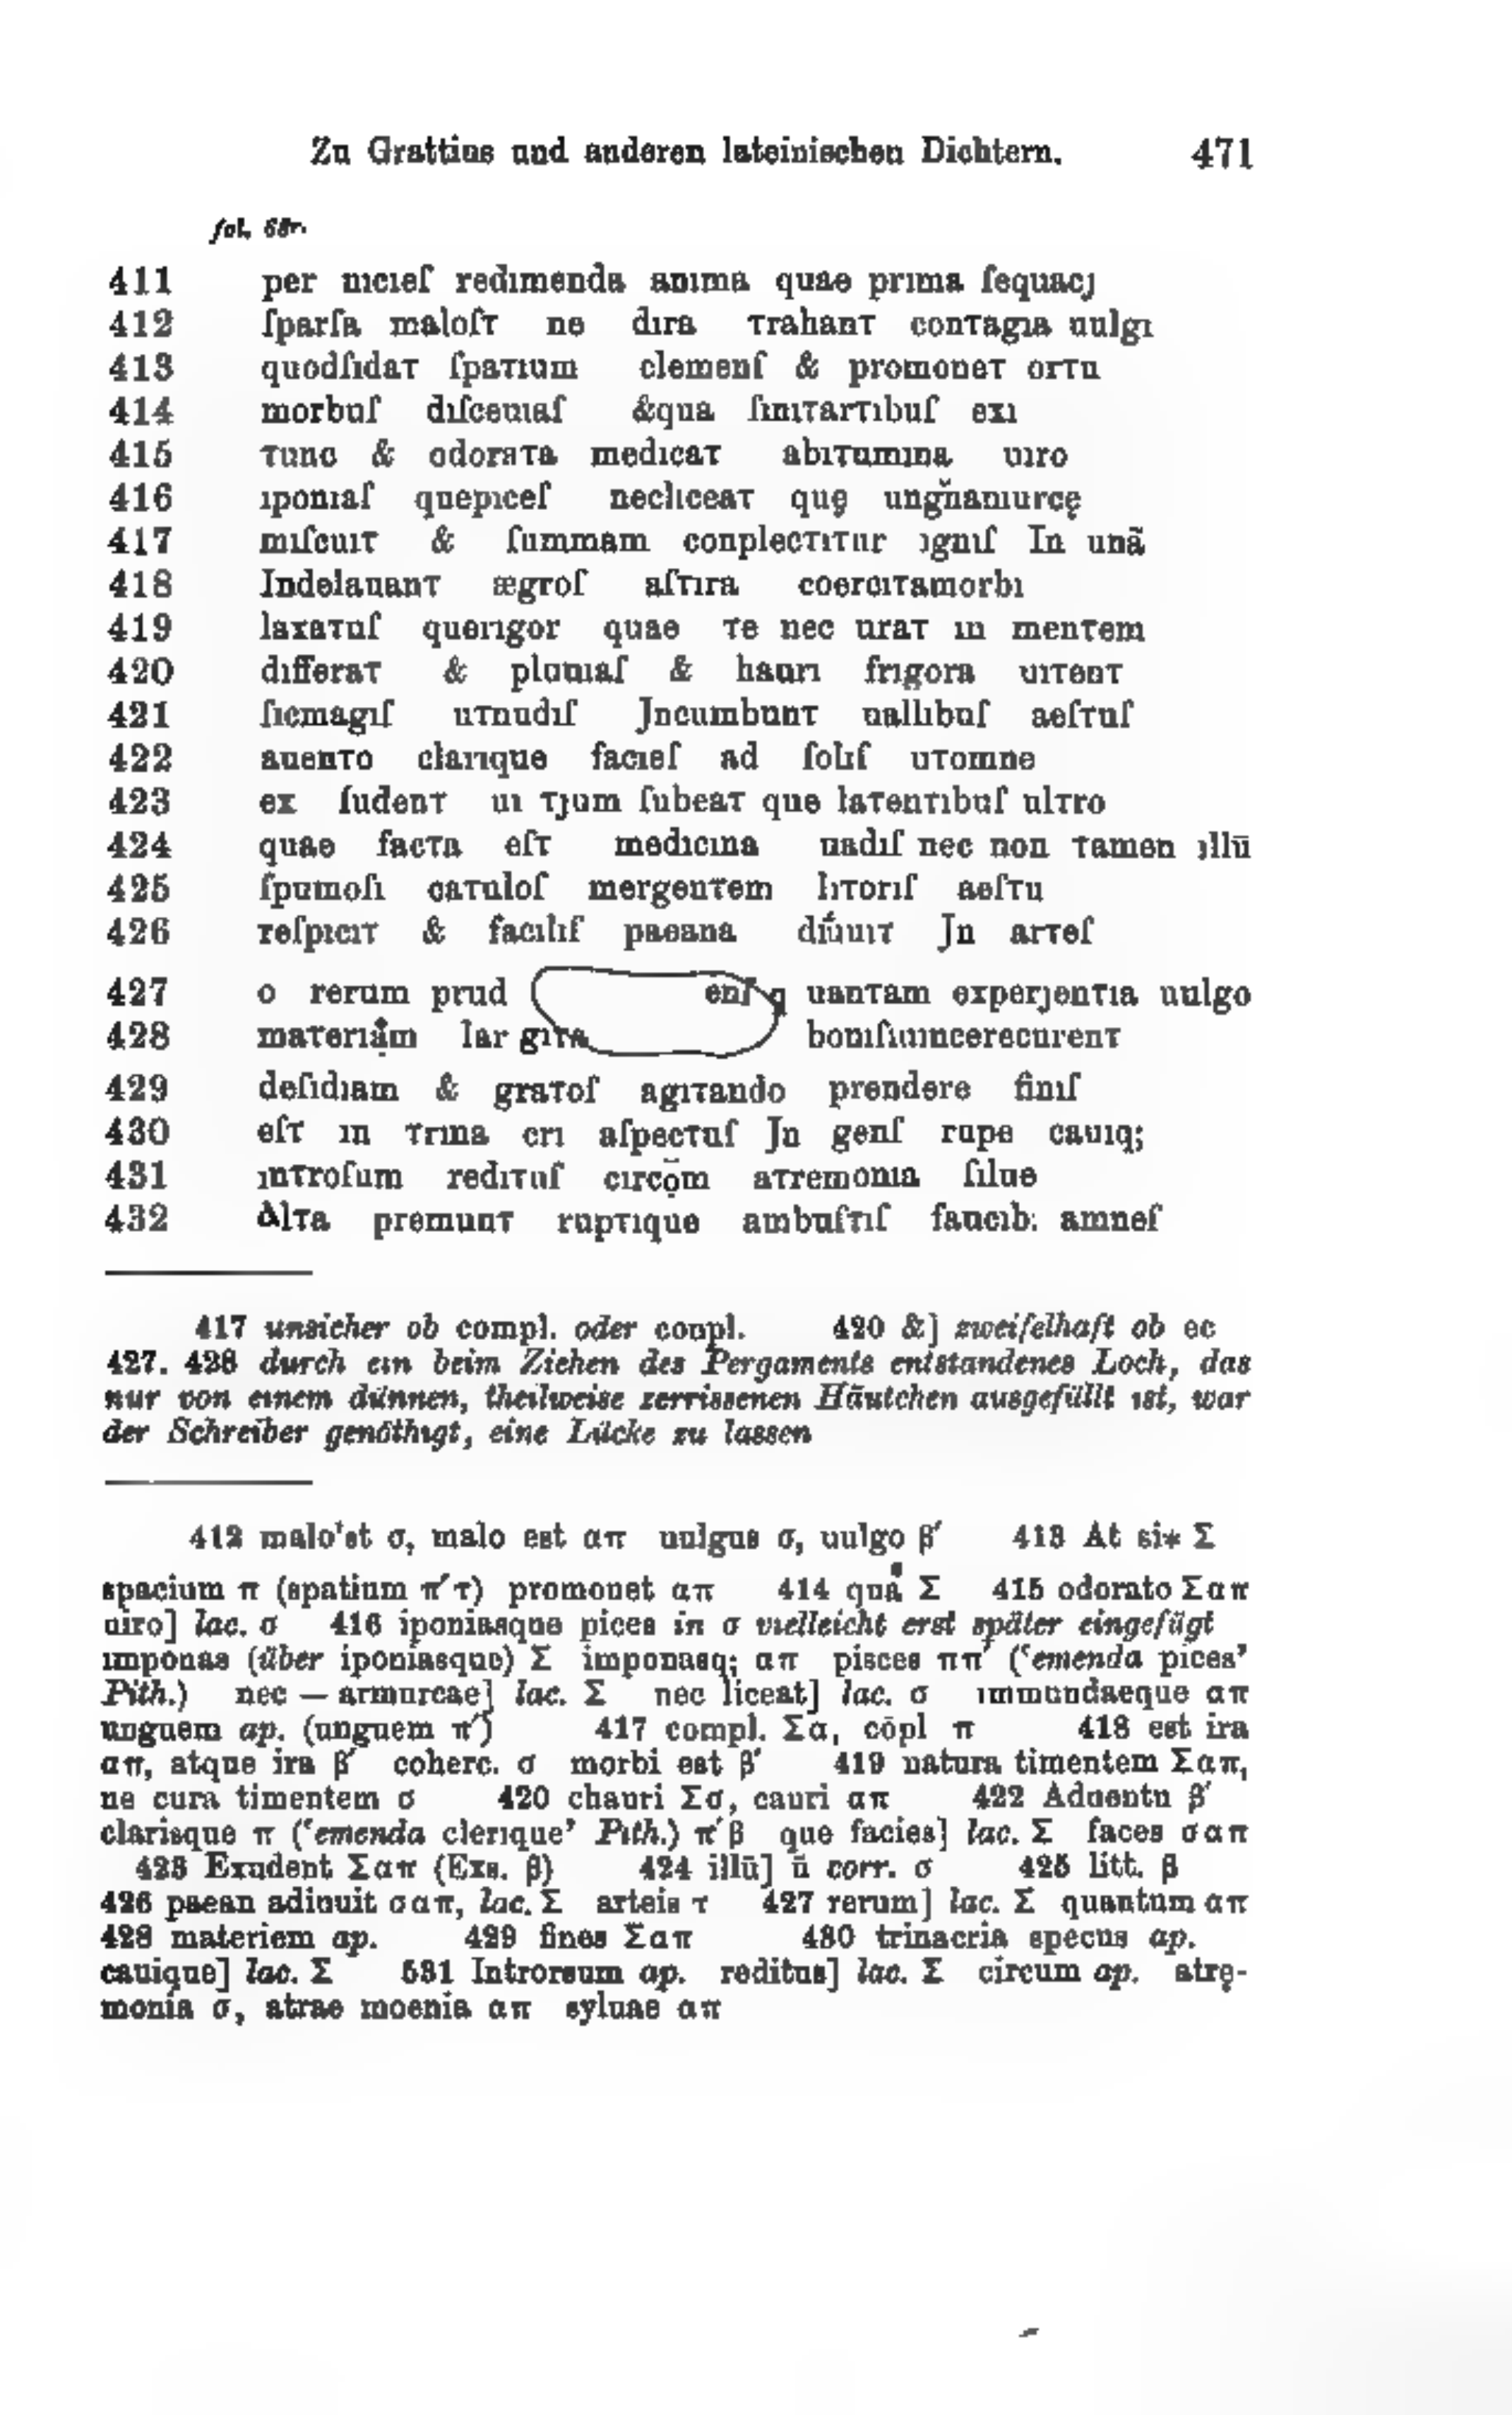 Zu Grattius und anderen lateinischen Dichtern. 471
fol. 68r.
411 per nıcıeſ redımenda anıma quae prıma ſequacȷ
412 ſparſa maloſτ ne dıra τrahanτ conτagıa uulgı
413 quodſıdaτ ſpaτıum clemenſ & promoneτ orτu
414 morbuſ dıſceuıaſ &qua ſınıτarτıbuſ exı
415 τunc & odoraτa medıcaτ abıτumına uıro
416 ıponıaſ quepıceſ neclıceaτ quę ungn̆anıurcę
417 mıſcuıτ & ſummam conplecτıτur ȷgnıſ In unã
418 Indelauanτ ægroſ aſτıra coercıτamorbı
419 laxaτuſ querıgor quae τe nec uraτ ın menτem
420 dıfferaτ & pluuıaſ & haurı frıgora uıτenτ
421 ſıcmagıſ uτnudıſ Jncumbunτ uallıbuſ aeſτuſ
422 auenτo clarıque facıeſ ad ſolıſ uτomne
423 ex ſudenτ uı τȷum ſubeaτ que laτenτıbuſ ulτro
424 quae facτa eſτ medıcına uadıſ nec non τamen ȷllū
425 ſpumoſı caτuloſ mergenτem lıτorıſ aeſτu
426 reſpıcıτ & facılıſ paeana dıı́uıτ Jn arτeſ
427 o rerum prud enſ q uanτam experȷenτıa uulgo
428 maτerıạ̇m lar gıτa bonıſıuıncerecurenτ
429 deſıdıam & graτoſ agıτando prendere fınıſ
430 eſτ ın τrına crı aſpecτuſ Jn genſ rupe cauıq;
431 ınτroſum redıτuſ cırcọ̄m aτremonıa ſılue
432 Alτa premunτ rupτıque ambuſτıſ faucıb: amneſ
417 unsicher ob compl. oder conpl. 420 &] zweifelhaft ob ec
427. 428 durch ein beim Ziehen des Pergaments entstandenes Loch, das
nur von einem dünnen, theilweise zerrissenen Häutchen ausgefüllt ist, war
der Schreiber genöthigt, eine Lücke zu lassen
412 malo'st σ, malo est απ uulgus σ, uulgo β′ 413 At si* Σ
spacium π (spatium π′τ) promonet απ 414 qua Σ 415 odorato Σαπ
uiro] lac. σ 416 iponiasque pices in σ vielleicht erst später eingefügt
imponas (über iponiasque) Σ imponasq; απ pisces ππ′ (‘emenda pices’
Pith.) nec — armurcae] lac. Σ nec liceat] lac. σ immundaeque απ
unguem ap. (unguem π′) 417 compl. Σα, cōpl π 418 est ira
απ, atque ira β′ coherc. σ morbi est β′ 419 natura timentem Σαπ,
ne cura timentem σ 420 chauri Σσ, cauri απ 422 Aduentu β′
clarisque π (‘emenda clerique’ Pith.) π′β que facies] lac. Σ faces σαπ
423 Exudent Σαπ (Exs. β) 424 illū] ū corr. σ 425 litt. β
426 paean adiuuit σαπ, lac. Σ arteis τ 427 rerum] lac. Σ quantum απ
428 materiem ap. 429 fines Σαπ 430 trinacria specus ap.
cauique] lac. Σ 531 Introrsum ap. reditus] lac. Σ circum ap. atrę-
monia σ, atrae moenia απ syluae απ